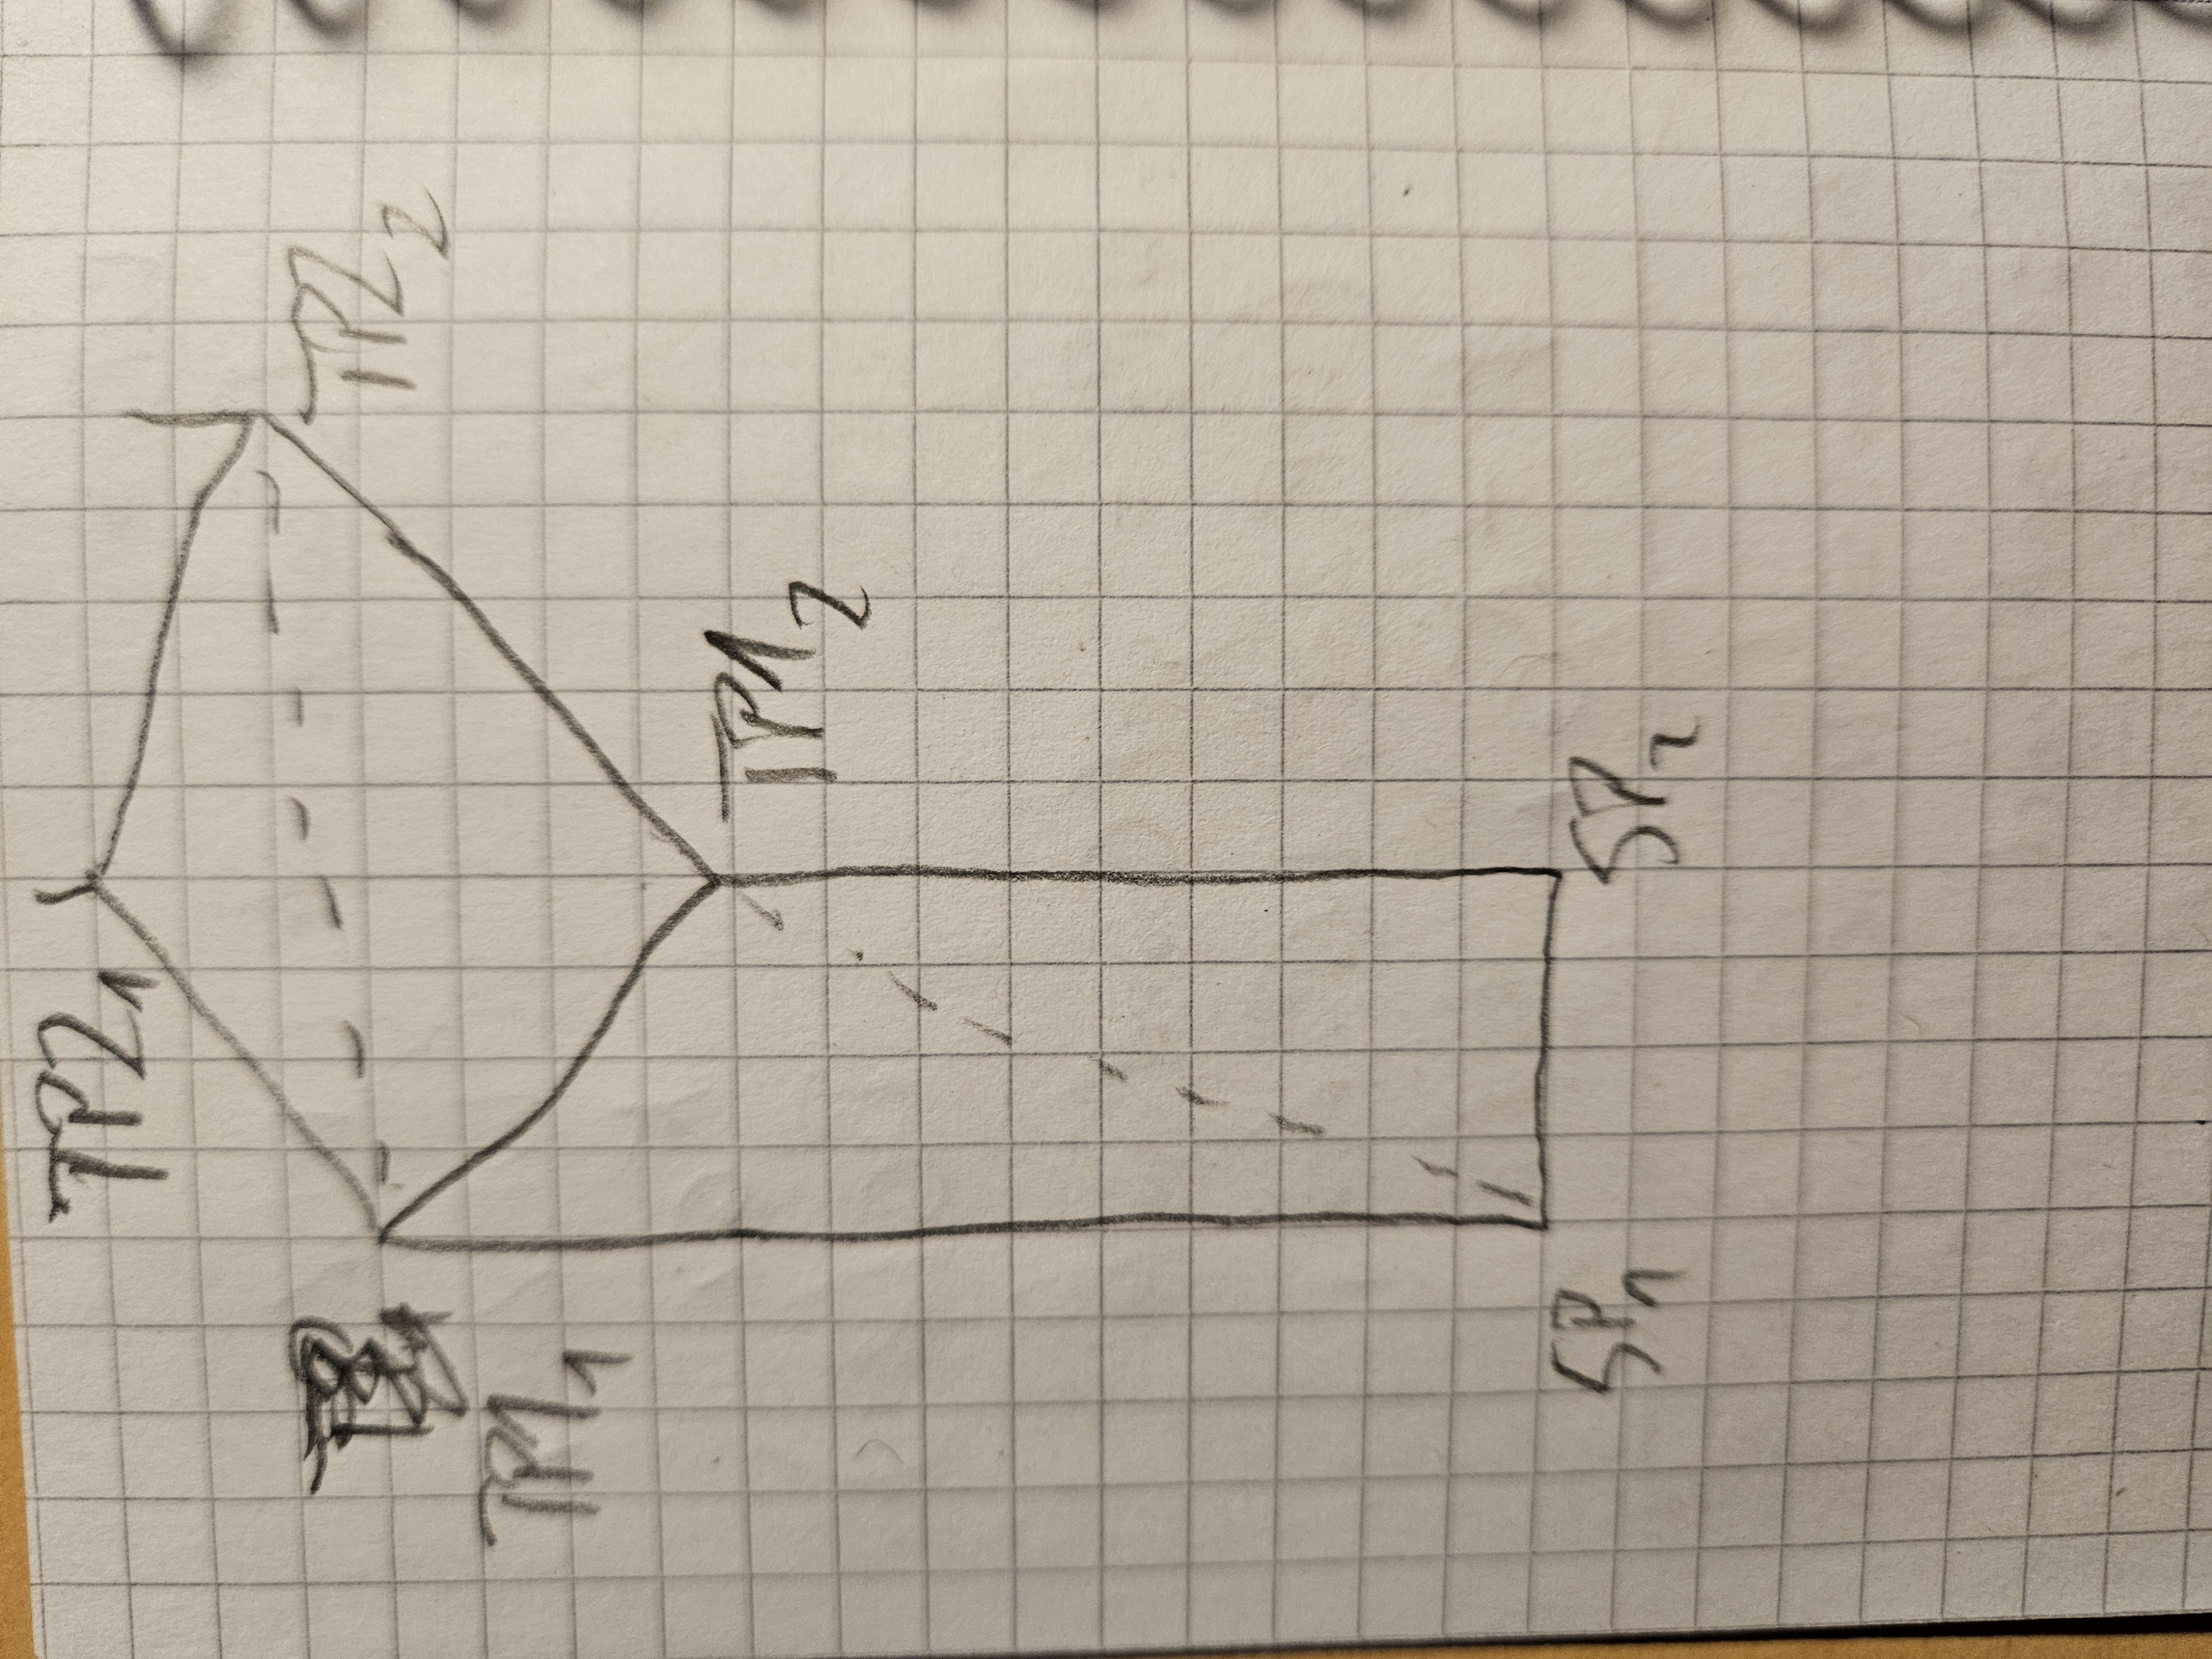 TP2₁
TP2₂
TP1₁
TP1₂
SP₁
SP₂